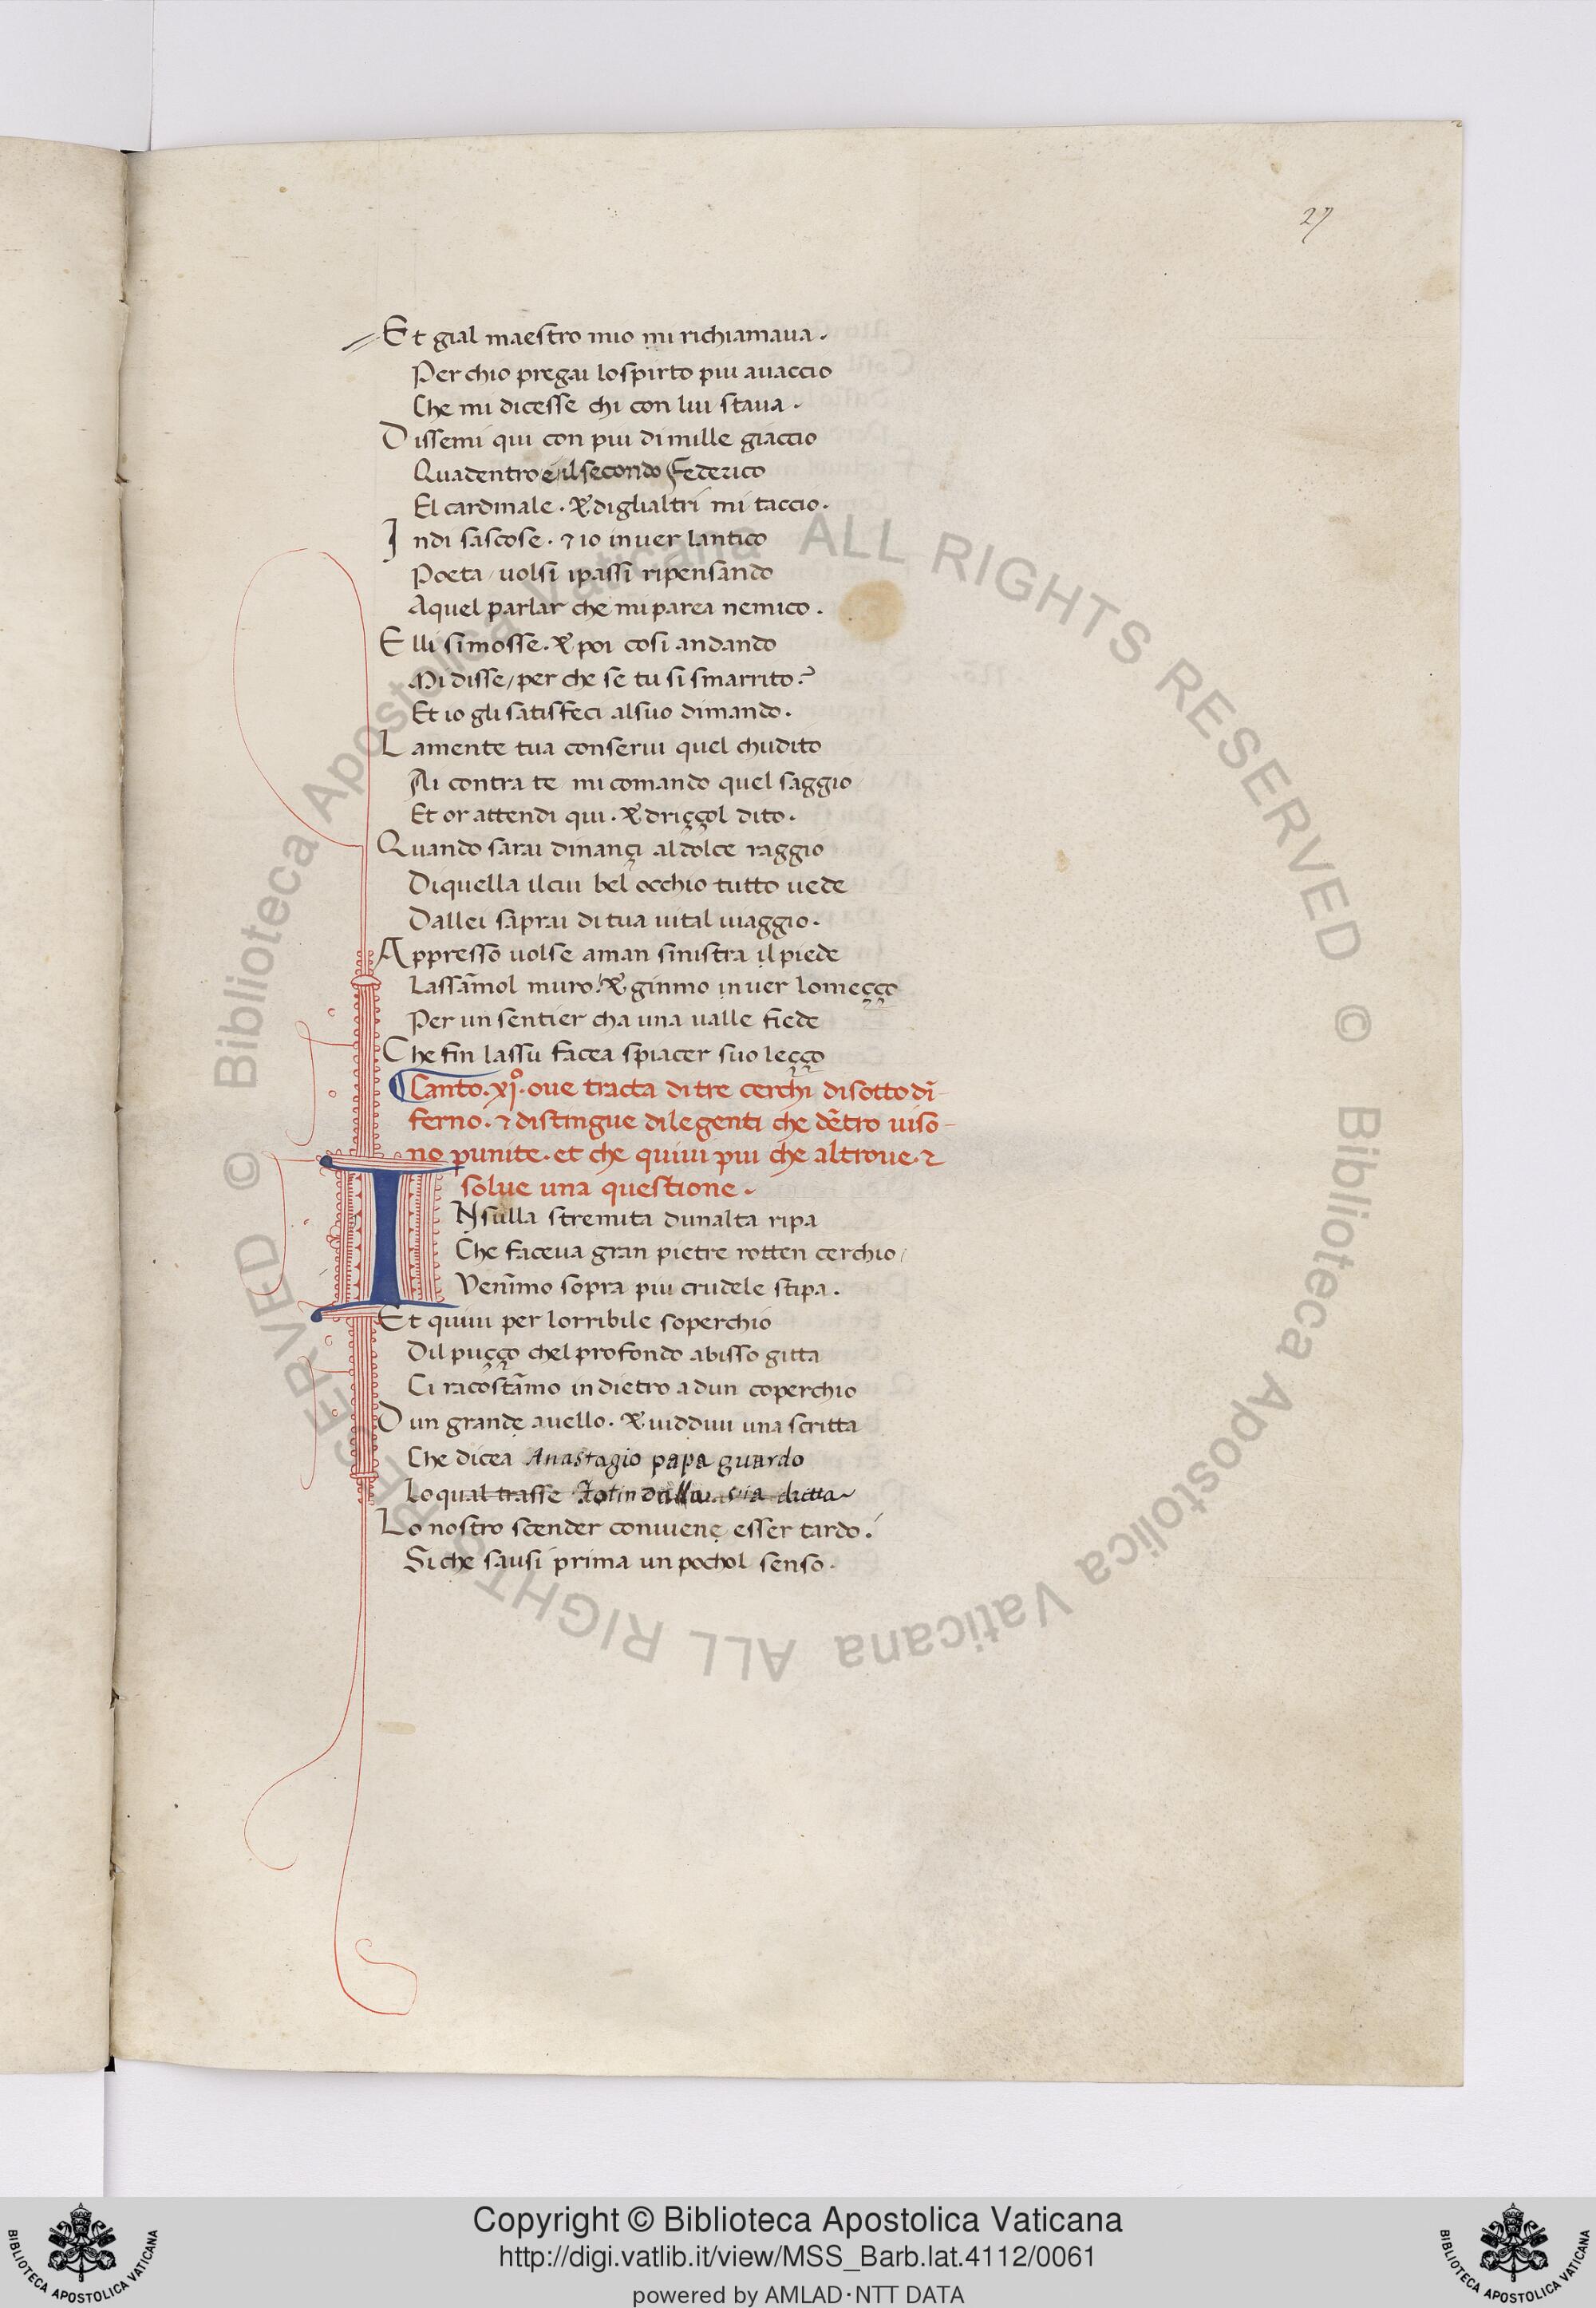 27
Et gial maestro mio mi richiamaua.
Per chio pregai lospirto piu auaccio
Che mi dicesse chi con lui staua.
Dissemi qui con piu di mille giaccio
Quadentro eilsecondo Federico
El cardinale. & diglialtri mi taccio.
Indi sascose. ⁊ io inuer lantico
Poeta / uolsi ipassi ripensando
Aquel parlar che mi parea nemico.
Elli simosse. & poi cosi andando
Mi disse / per che se tu si smarrito?
Et io gli satisfeci alsuo dimando.
Lamente tua conserui quel chudito
Ai contra te mi comando quel saggio
Et or attendi qui. & driççol dito.
Quando sarai dinançi aldolce raggio
Diquella ilcui bel occhio tutto uede
Dallei saprai di tua uital uiaggio.
Appresso uolse aman sinistra il piede
Lassāmol muro. & ginmo inuer lomeçço
Per un sentier cha una ualle fiede
Che fin lassu facea spiacer suo leçço
Canto. xjº. oue tracta di tre cerchi disotto dī-
ferno. ⁊ distingue dilegenti che dētro uiso-
no punite. et che quiui piu che altroue. ⁊
solue una questione.
INsulla stremita dunalta ripa
Che faceua gran pietre rotten cerchio /
Venīmo sopra piu crudele stipa.
Et quiui per lorribile soperchio
Dil puçço chel profondo abisso gitta
Ci racostāmo indietro adun coperchio
Dun grande auello. & uidduu una scritta
Che dicea Anastagio papa guardo
Loqual trasse Fotin della via dritta
Lo nostro scender conuiene esser tardo.
Si che sausi prima un pochol senso.
© Biblioteca Apostolica Vaticana ALL RIGHTS RESERVED
© Biblioteca Apostolica Vaticana ALL RIGHTS RESERVED
Copyright © Biblioteca Apostolica Vaticana
http://digi.vatlib.it/view/MSS_Barb.lat.4112/0061
powered by AMLAD·NTT DATA
BIBLIOTECA APOSTOLICA VATICANA
BIBLIOTECA APOSTOLICA VATICANA